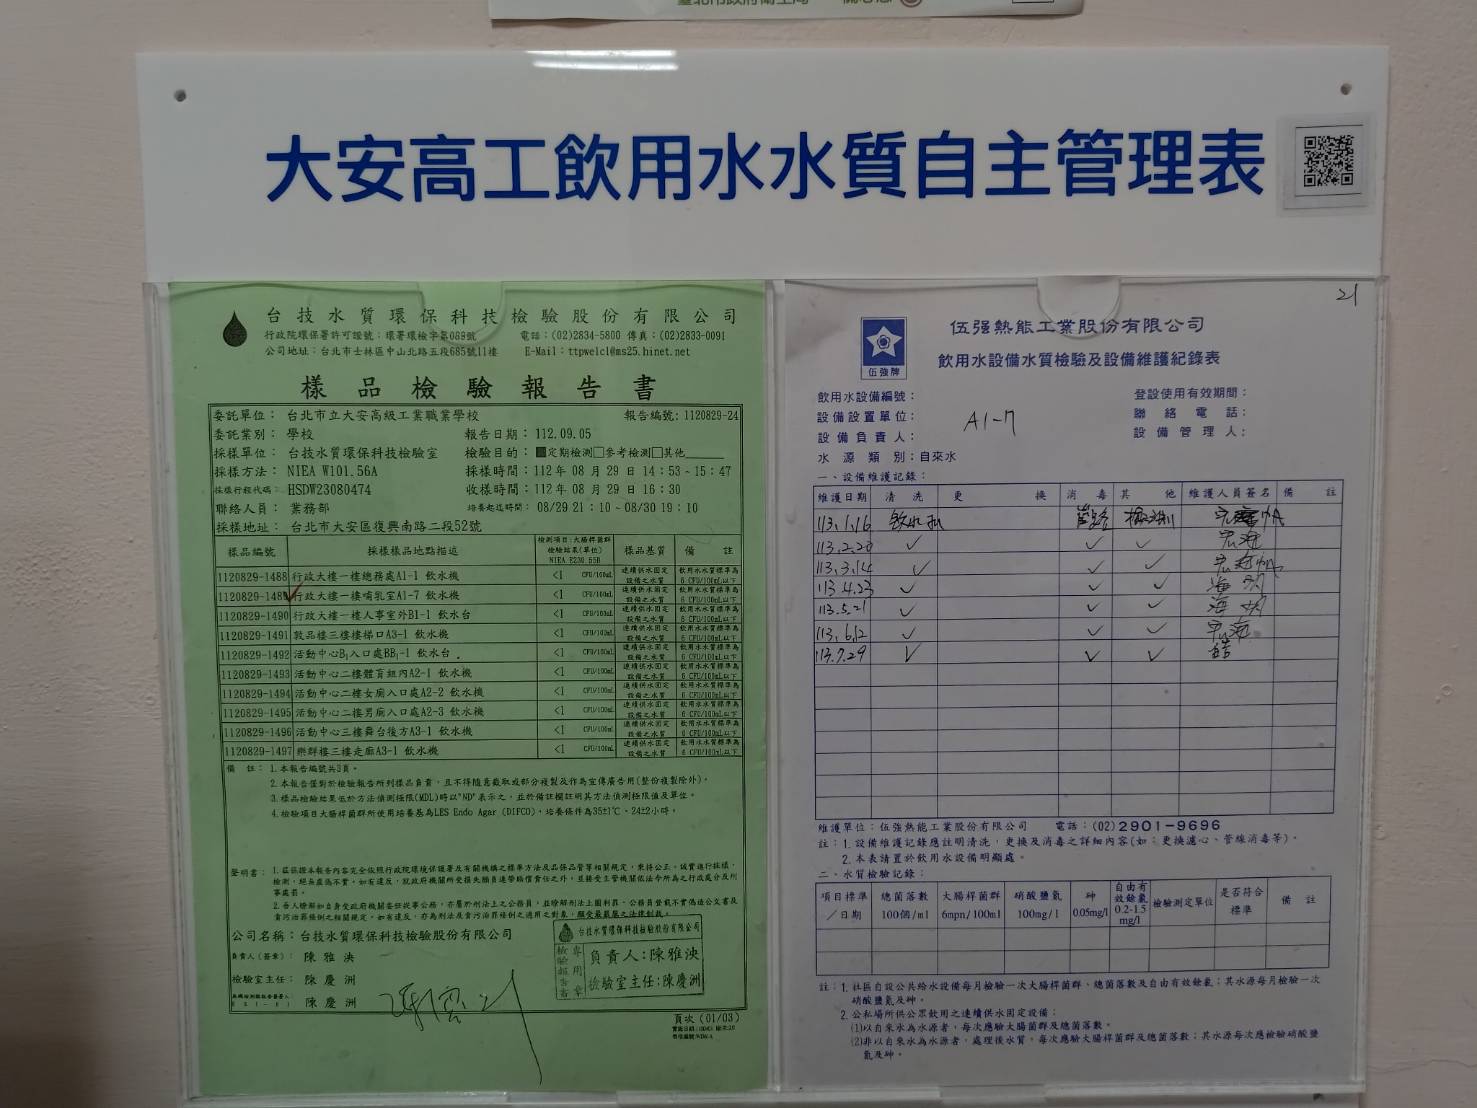 大安高工飲用水水質自主管理表
台技水質環保科技檢驗股份有限公司
行政院環保署許可證號：環署環檢字第089號 電話：(02)2834-5800 傳真：(02)2833-0091
公司地址：台北市士林區中山北路五段685號11樓 E-Mail：ttpwelcl@ms25.hinet.net
樣品檢驗報告書
委託單位： 台北市立大安高級工業職業學校 報告編號: 1120829-24
委託業別： 學校 報告日期：112.09.05
採樣單位： 台技水質環保科技檢驗室 檢驗目的：■定期檢測□參考檢測□其他
採樣方法： NIEA W101.56A 採樣時間：112年 08 月 29 日 14：53~15：47
採樣行程代碼： HSDW23080474 收樣時間：112年 08 月 29 日 16：30
聯絡人員： 業務部 培養起迄時間： 08/29 21：10~08/30 19：10
採樣地址： 台北市大安區復興南路二段52號
樣品編號 採樣樣品地點描述 檢測項目:大腸桿菌群 檢驗結果(單位) NIEA E230.55B 樣品基質 備 註
1120829-1488 行政大樓一樓總務處A1-1 飲水機 <1 CFU/100mL 連續供水固定設備之水質 飲用水水質標準為6 CFU/100mL以下
1120829-1489 行政大樓一樓哺乳室A1-7 飲水機 <1 CFU/100mL 連續供水固定設備之水質 飲用水水質標準為6 CFU/100mL以下
1120829-1490 行政大樓一樓人事室外B1-1 飲水台 <1 CFU/100mL 連續供水固定設備之水質 飲用水水質標準為6 CFU/100mL以下
1120829-1491 敦品樓三樓樓梯口A3-1 飲水機 <1 CFU/100mL 連續供水固定設備之水質 飲用水水質標準為6 CFU/100mL以下
1120829-1492 活動中心B1入口處BB1-1 飲水台 <1 CFU/100mL 連續供水固定設備之水質 飲用水水質標準為6 CFU/100mL以下
1120829-1493 活動中心二樓體育組內A2-1 飲水機 <1 CFU/100mL 連續供水固定設備之水質 飲用水水質標準為6 CFU/100mL以下
1120829-1494 活動中心二樓女廁入口處A2-2 飲水機 <1 CFU/100mL 連續供水固定設備之水質 飲用水水質標準為6 CFU/100mL以下
1120829-1495 活動中心二樓男廁入口處A2-3 飲水機 <1 CFU/100mL 連續供水固定設備之水質 飲用水水質標準為6 CFU/100mL以下
1120829-1496 活動中心三樓舞台後方A3-1 飲水機 <1 CFU/100mL 連續供水固定設備之水質 飲用水水質標準為6 CFU/100mL以下
1120829-1497 樂群樓三樓走廊A3-1 飲水機 <1 CFU/100mL 連續供水固定設備之水質 飲用水水質標準為6 CFU/100mL以下
備 註：1.本報告編號共3頁。
2.本報告僅對於檢驗報告所列樣品負責，且不得隨意截取或部分複製及作為宣傳廣告用(整份複製除外)。
3.樣品檢驗結果低於方法偵測極限(MDL)時以"ND"表示之，並於備註欄註明其方法偵測極限值及單位。
4.檢驗項目大腸桿菌群所使用培養基為LES Endo Agar (DIFCO)，培養條件為35±1℃、24±2小時。
聲明書： 1.茲保證本報告內容完全依照行政院環境保護署及有關機構之標準方法及品保品管等相關規定，秉持公正、誠實進行採樣、
檢測，絕無虛偽不實，如有違反，就政府機關所受損失願負連帶賠償責任之外，並接受主管機關依法令所為之行政處分及刑
事處罰。
2.吾人瞭解如自身受政府機關委任從事公務，亦屬於刑法上之公務員，並瞭解刑法上圖利罪、公務員登載不實偽造公文書及
貪污治罪條例之相關規定，如有違反，亦為刑法及貪污治罪條例之適用之對象，願受最嚴厲之法律制裁。
公司名稱：台技水質環保科技檢驗股份有限公司
負責人(簽章)： 陳雅泱
檢驗室主任： 陳慶洲
陳慶洲
台技水質環保科技檢驗股份有限公司
檢驗報告專用章
負責人:陳雅泱
檢驗室主任:陳慶洲
頁次 (01/03)
21
伍強牌
伍强熱能工業股份有限公司
飲用水設備水質檢驗及設備維護紀錄表
飲用水設備編號： 登設使用有效期間：
設備設置單位： A1-7 聯絡電話：
設備負責人： 設備管理人：
水源類別：自來水
一、設備維護記錄：
維護日期 清洗 更換 消毒 其他 維護人員簽名 備註
113.1.16 飲水機 管路 檢測
113.2.20 ✓ ✓ ✓
113.3.14 ✓ ✓ ✓
113.4.23 ✓ ✓ ✓
113.5.21 ✓ ✓ ✓
113.6.12 ✓ ✓ ✓
113.7.29 ✓ ✓ ✓
維護單位：伍強熱能工業股份有限公司 電話：(02)2901-9696
註：1.設備維護記錄應註明清洗、更換及消毒之詳細內容(如：更換濾心、管線消毒等)。
2.本表請置於飲用水設備明顯處。
二、水質檢驗記錄：
項目標準／日期 總菌落數 100個/ml 大腸桿菌群 6mpn/100ml 硝酸鹽氮 100mg/l 砷 0.05mg/l 自由有效餘氯 0.2-1.5 mg/l 檢驗測定單位 是否符合標準 備註
註：1.社區自設公共給水設備每月檢驗一次大腸桿菌群、總菌落數及自由有效餘氯；其水源每月檢驗一次
硝酸鹽氮及砷。
2.公私場所供公眾飲用之連續供水固定設備：
(1)以自來水為水源者，每次應驗大腸菌群及總菌落數。
(2)非以自來水為水源者，處理後水質，每次應驗大腸桿菌群及總菌落數；其水源每次應檢驗硝酸鹽
氮及砷。